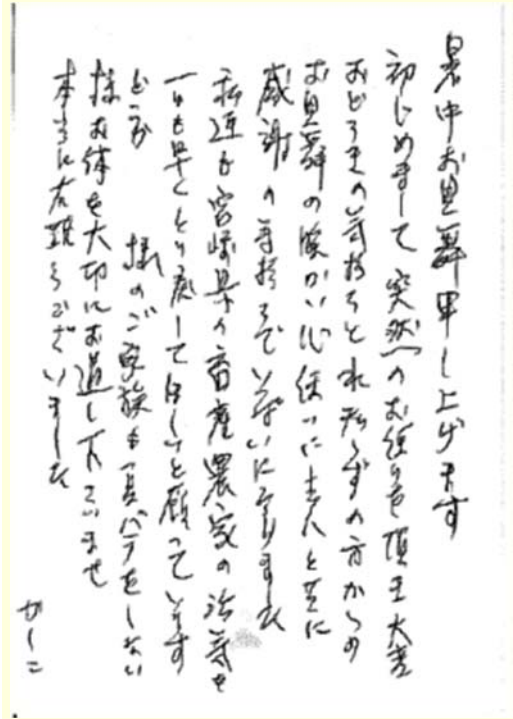 暑中お見舞申し上げます
初じめまして突然のお便りを頂き大変
おどろきの気持ちと見知らずの方からの
お見舞の暖かい心使いに主人と共に
感謝の気持ちでいっぱいになりました
私達も宮崎県の畜産農家の活気を
一日も早くとり戻してほしいと願っています
どうか 様のご家族も夏バテをしない
様お体を大切にお過し下さいませ
本当に有難うございました
かしこ